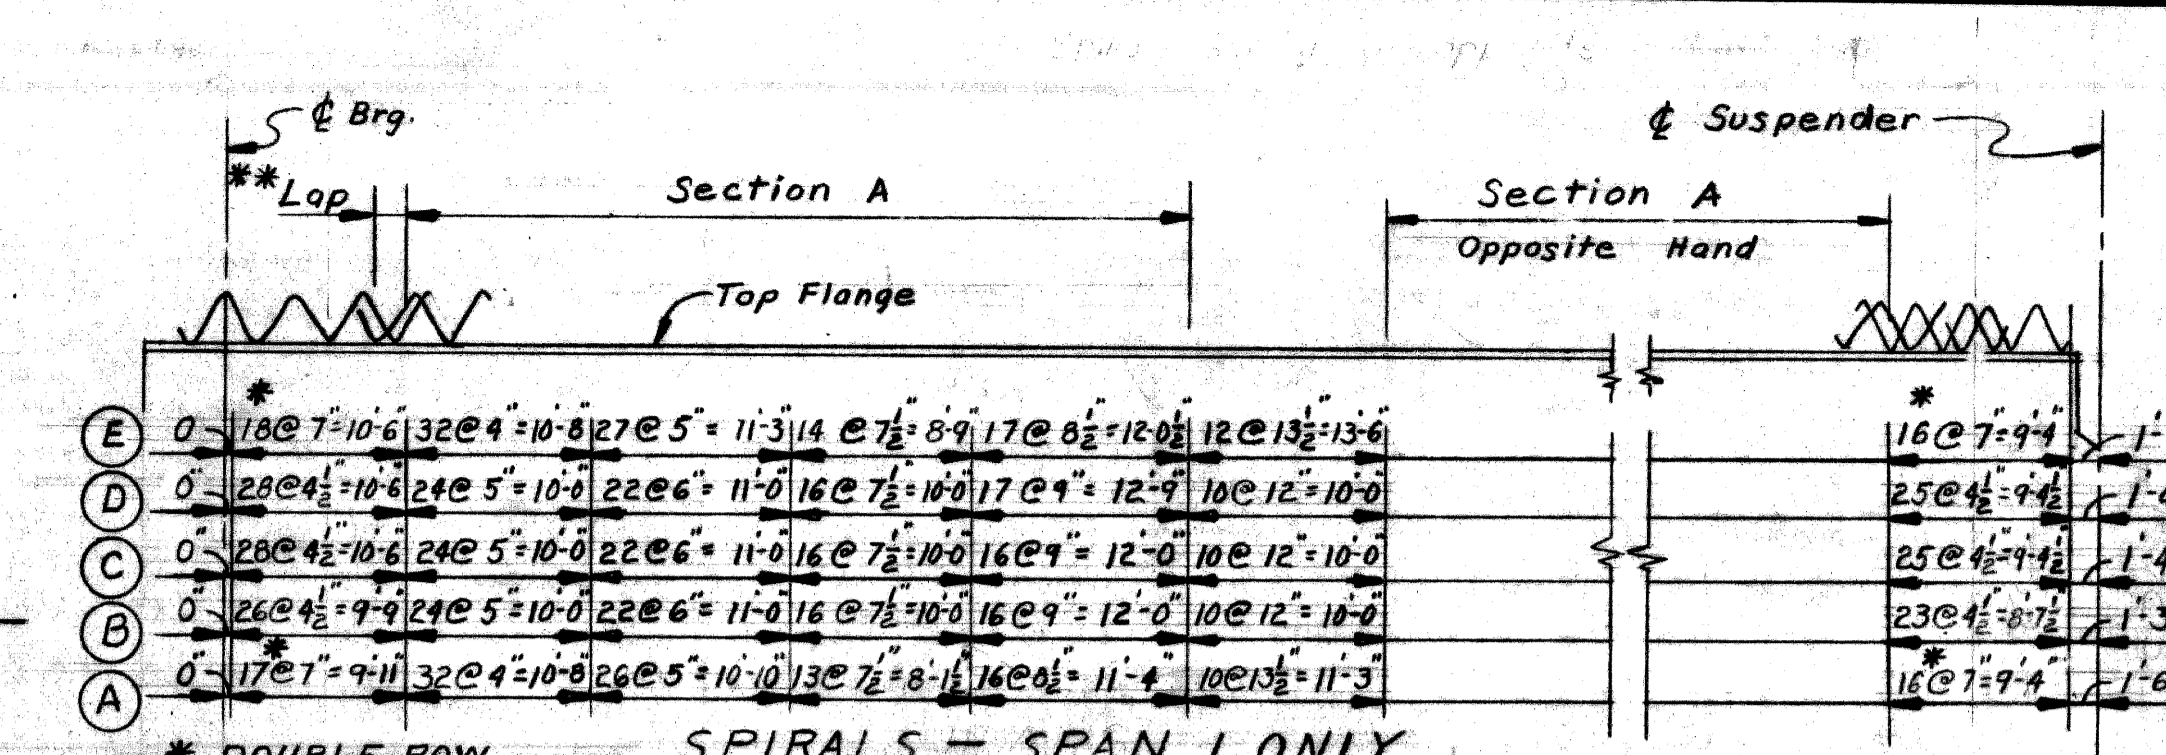 ℄ Brg.
℄ Suspender
** Lap
Section A
Section A
Opposite Hand
Top Flange
*
*
E 0" 18@ 7"=10'-6" 32@4"=10'-8" 27@5"= 11'-3" 14 @ 7½"= 8'-9" 17@ 8½"=12'-0½" 12@13½"=13'-6" 16@ 7"=9'-4"
D 0" 28@4½"=10'-6" 24@ 5"=10'-0" 22@6"= 11'-0" 16@ 7½"=10'-0" 17@9"= 12'-9" 10@ 12"=10'-0" 25@4½"=9'-4½"
C 0" 28@4½"=10'-6" 24@ 5"=10'-0" 22@6"= 11'-0" 16@ 7½"=10'-0" 16@9"= 12'-0" 10@ 12"=10'-0" 25@4½"=9'-4½"
B 0" 26@4½"=9'-9" 24@ 5"=10'-0" 22@6"= 11'-0" 16 @7½"=10'-0" 16@9"= 12'-0" 10@12"= 10'-0" 23@4½"=8'-7½"
*
*
A 0" 17@7"=9'-11" 32@4"=10'-8" 26@5"=10'-10" 13@ 7½"=8'-1½" 16@8½"= 11'-4" 10@13½"=11'-3" 16@7"=9'-4" 1'-6
* DOUBLE ROW
SPIRALS — SPAN 1 ONLY